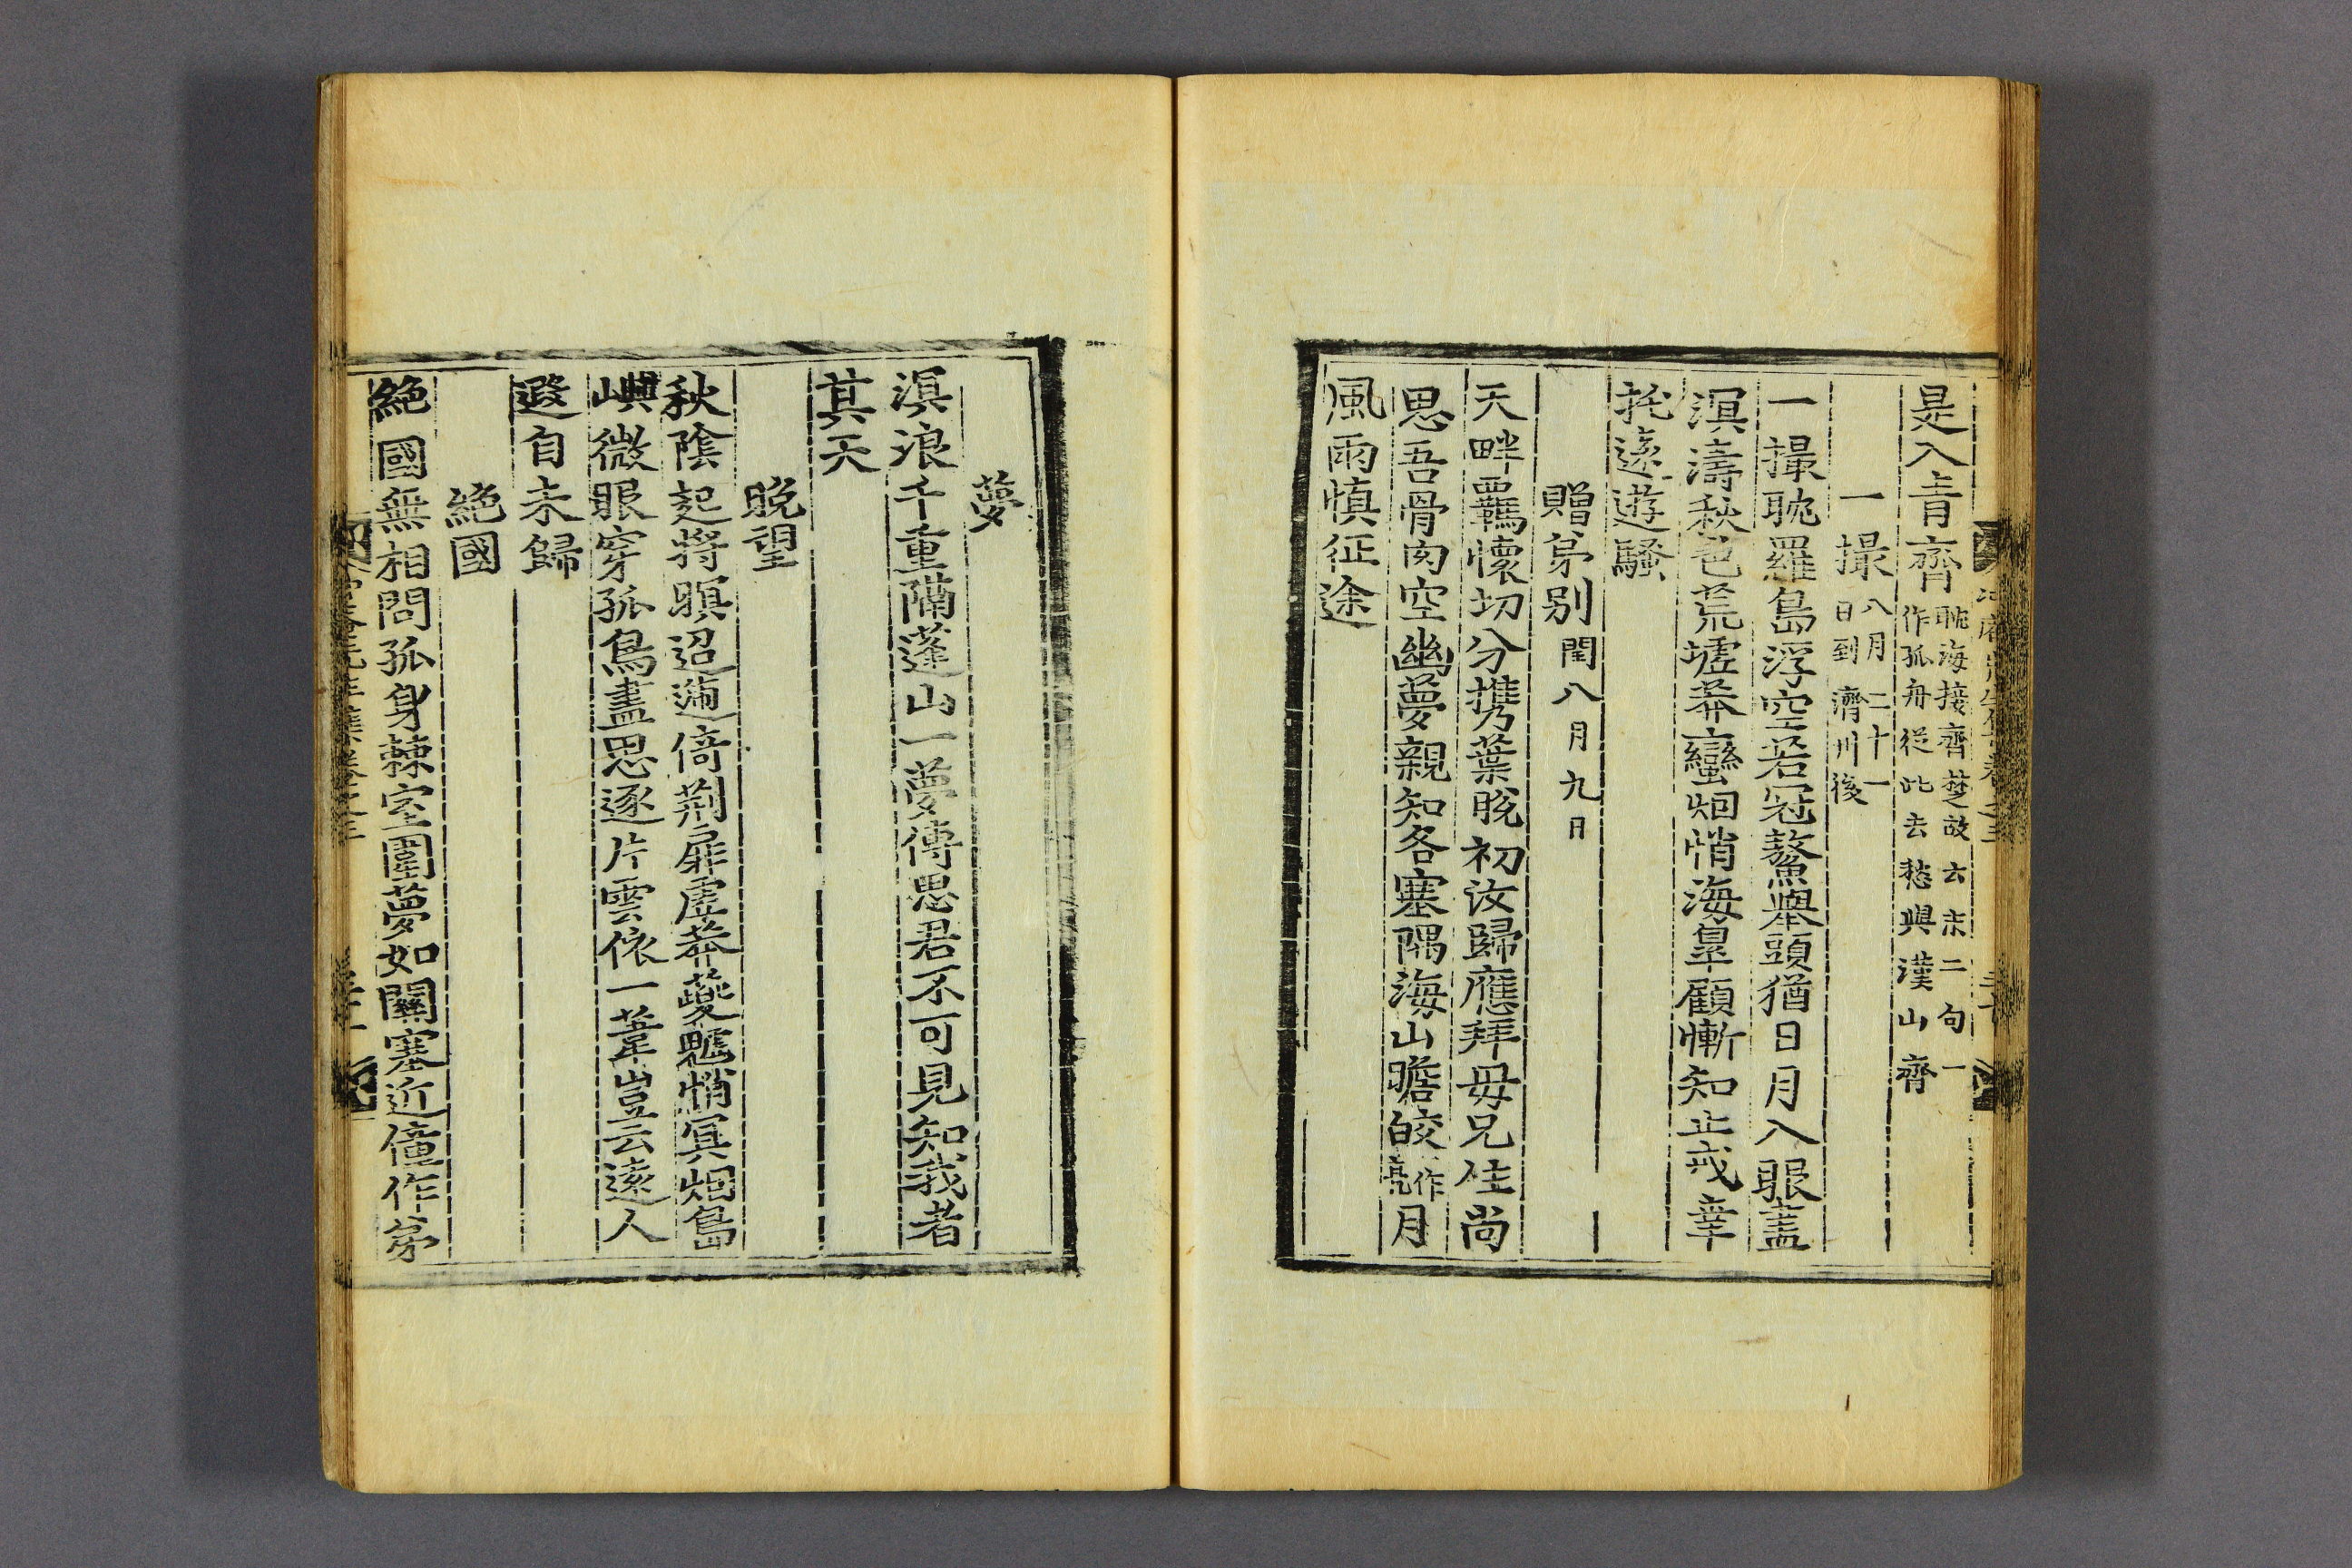 是入青齊耽海接齊楚故云末二句一作孤舟從此去愁與漢山齊
一撮八月二十一日到濟州後
一撮耽羅島浮空若冠鰲舉頭猶日月入眼盖
溟濤秋色荒墟莽蠻烟悄海皐顧慚知止戒幸
托遠遊騷
贈弟別閏八月九日
天畔羈懷切分携葉脫初汝歸應拜母兄住尚
思吾骨肉空幽夢親知各塞隅海山瞻皎作亮月
風雨愼征途
夢
溟浪千重隔蓬山一夢傳思君不可見知我者
其天
晩望
秋陰起將暝迢遞倚荊扉虛莽夔魖悄冥烟島
嶼微眼穿孤鳥盡思逐片雲依一葦豈云遠人
遐自未歸
絶國
絶國無相問孤身棘室圍夢如關塞近僮作弟